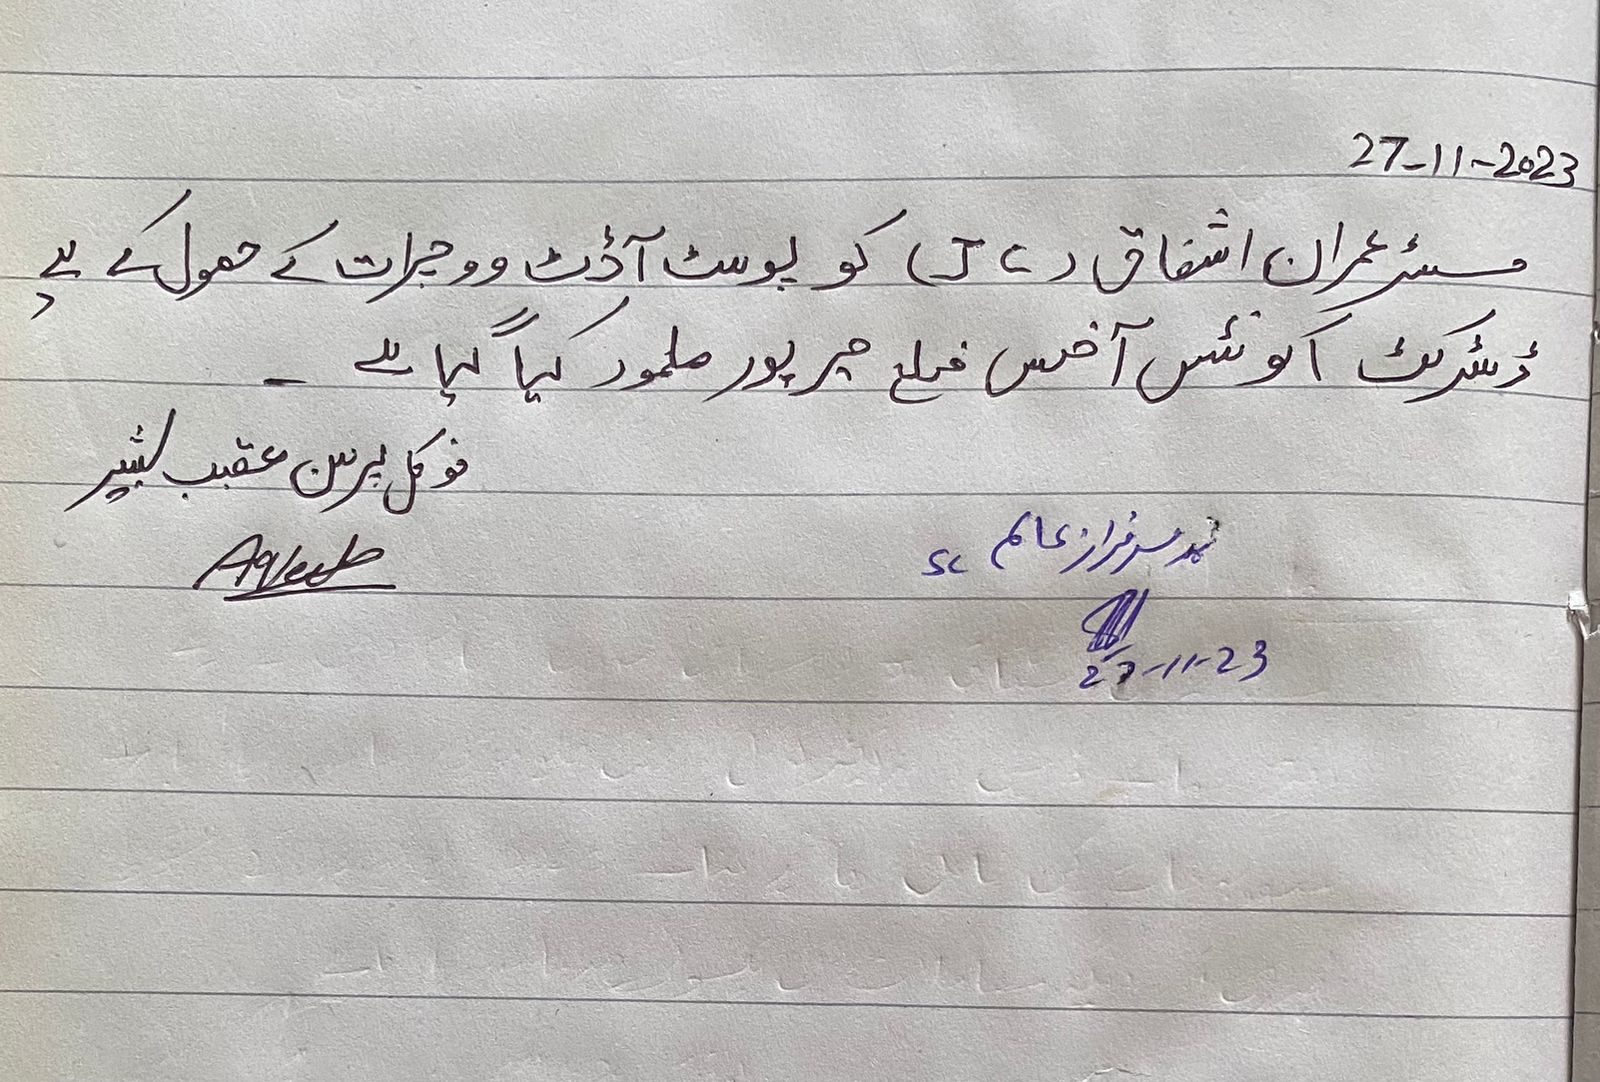 27-11-2023
مسٹر عمران اشفاق (JC) کو پوسٹ آڈٹ ووچرات کے حصول کے لیے
ڈسٹرکٹ اکونٹس آفس ضلع میرپور مامور کیا گیا ہے ۔
فوکل پرسن عقیب بشیر
Aqeeb
محمد سرفراز عالم SC
27-11-23